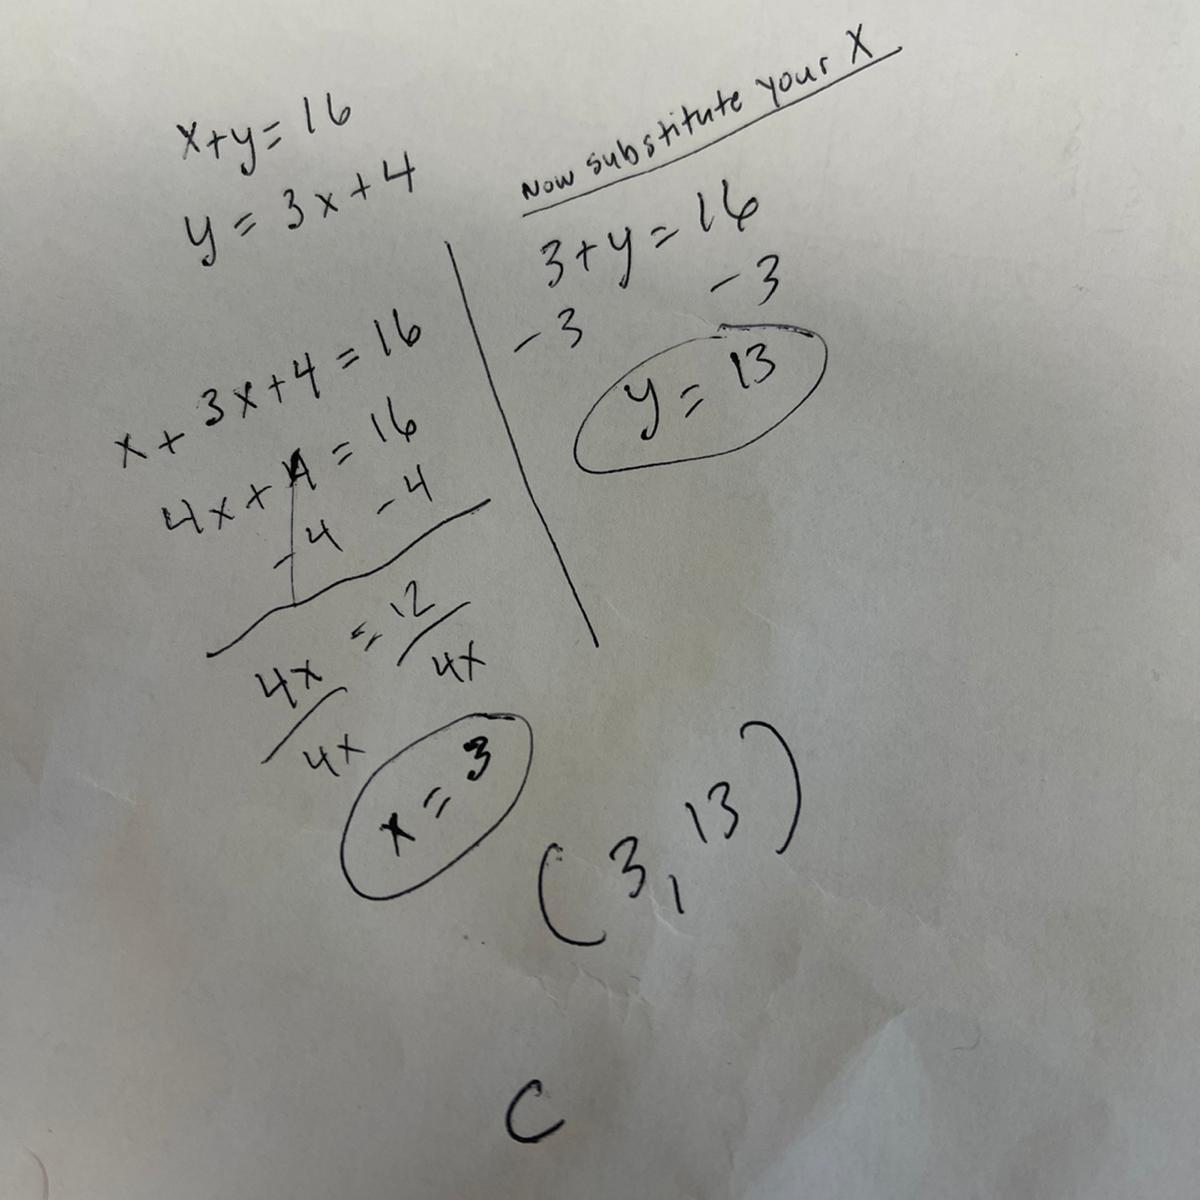 x+y=16
y=3x+4
x+3x+4=16
4x+4=16
-4 -4
4x =12
4x 4x
x=3
Now substitute your X
3+y=16
-3 -3
y=13
(3,13)
C